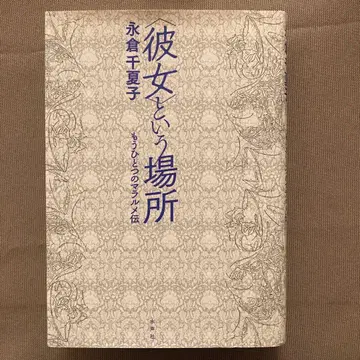 〈彼女〉という場所
もうひとつのマラルメ伝
永倉千夏子
水声社